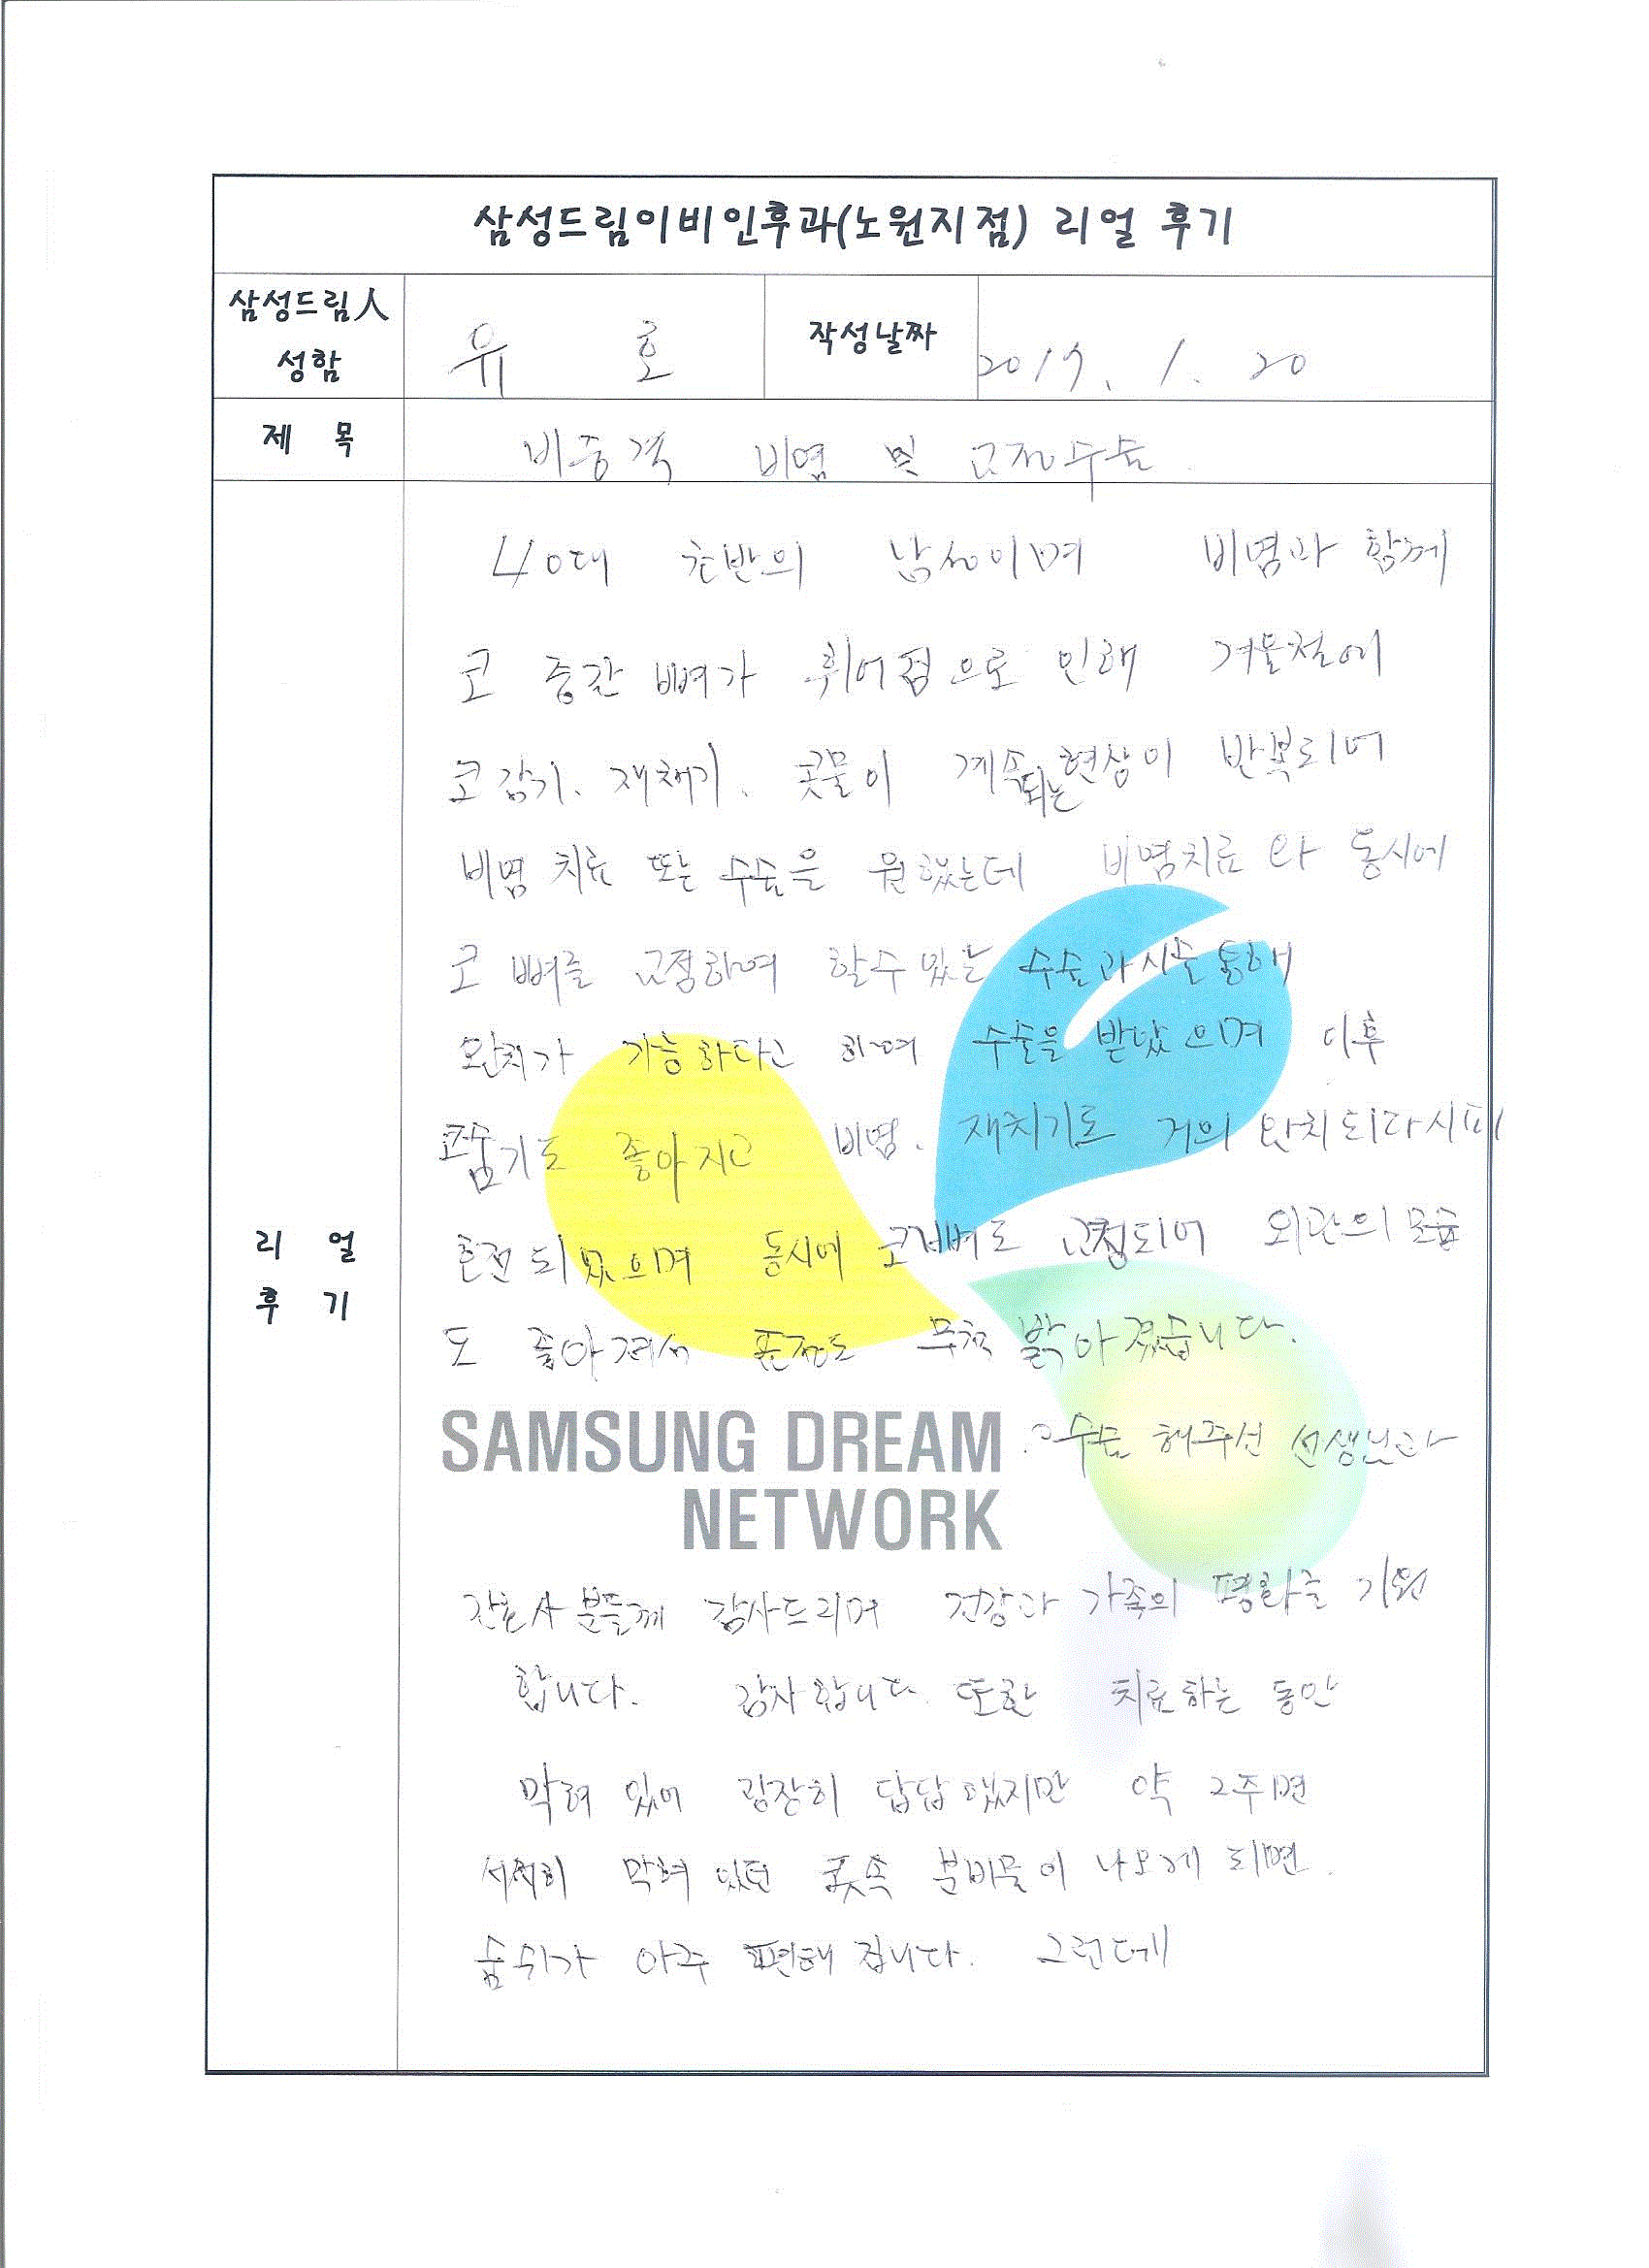 삼성드림이비인후과(노원지점) 리얼 후기
삼성드림人
성함
유 호
작성날짜
2019. 1. 20
제 목
비중격 비염 및 교정수술.
리 얼
후 기
40대 초반의 남성이며 비염과 함께
코 중간 뼈가 휘어점으로 인해 겨울철에
코감기, 재채기, 콧물이 계속되는 현상이 반복되며
비염 치료 또는 수술을 원했는데 비염치료와 동시에
코 뼈를 교정하여 할수 있는 수술과 시술 통해
완치가 가능하다고 하여 수술을 받았으며 이후
코숨기도 좋아지고 비염, 재치기로 거의 완치되다시피
호전되었으며 동시에 코겉뼈도 교정되어 외관의 모습
도 좋아져서 표정도 무척 밝아졌습니다.
SAMSUNG DREAM
NETWORK
수술 해주신 선생님과
간호사분들께 감사드리며 건강과 가족의 평화를 기원
합니다. 감사합니다. 또한 치료하는 동안
막혀 있어 굉장히 답답했지만 약 2주면
서서히 막혀 있던 콧속 분비물이 나오게 되면.
숨쉬가 아주 편해 집니다. 그런데